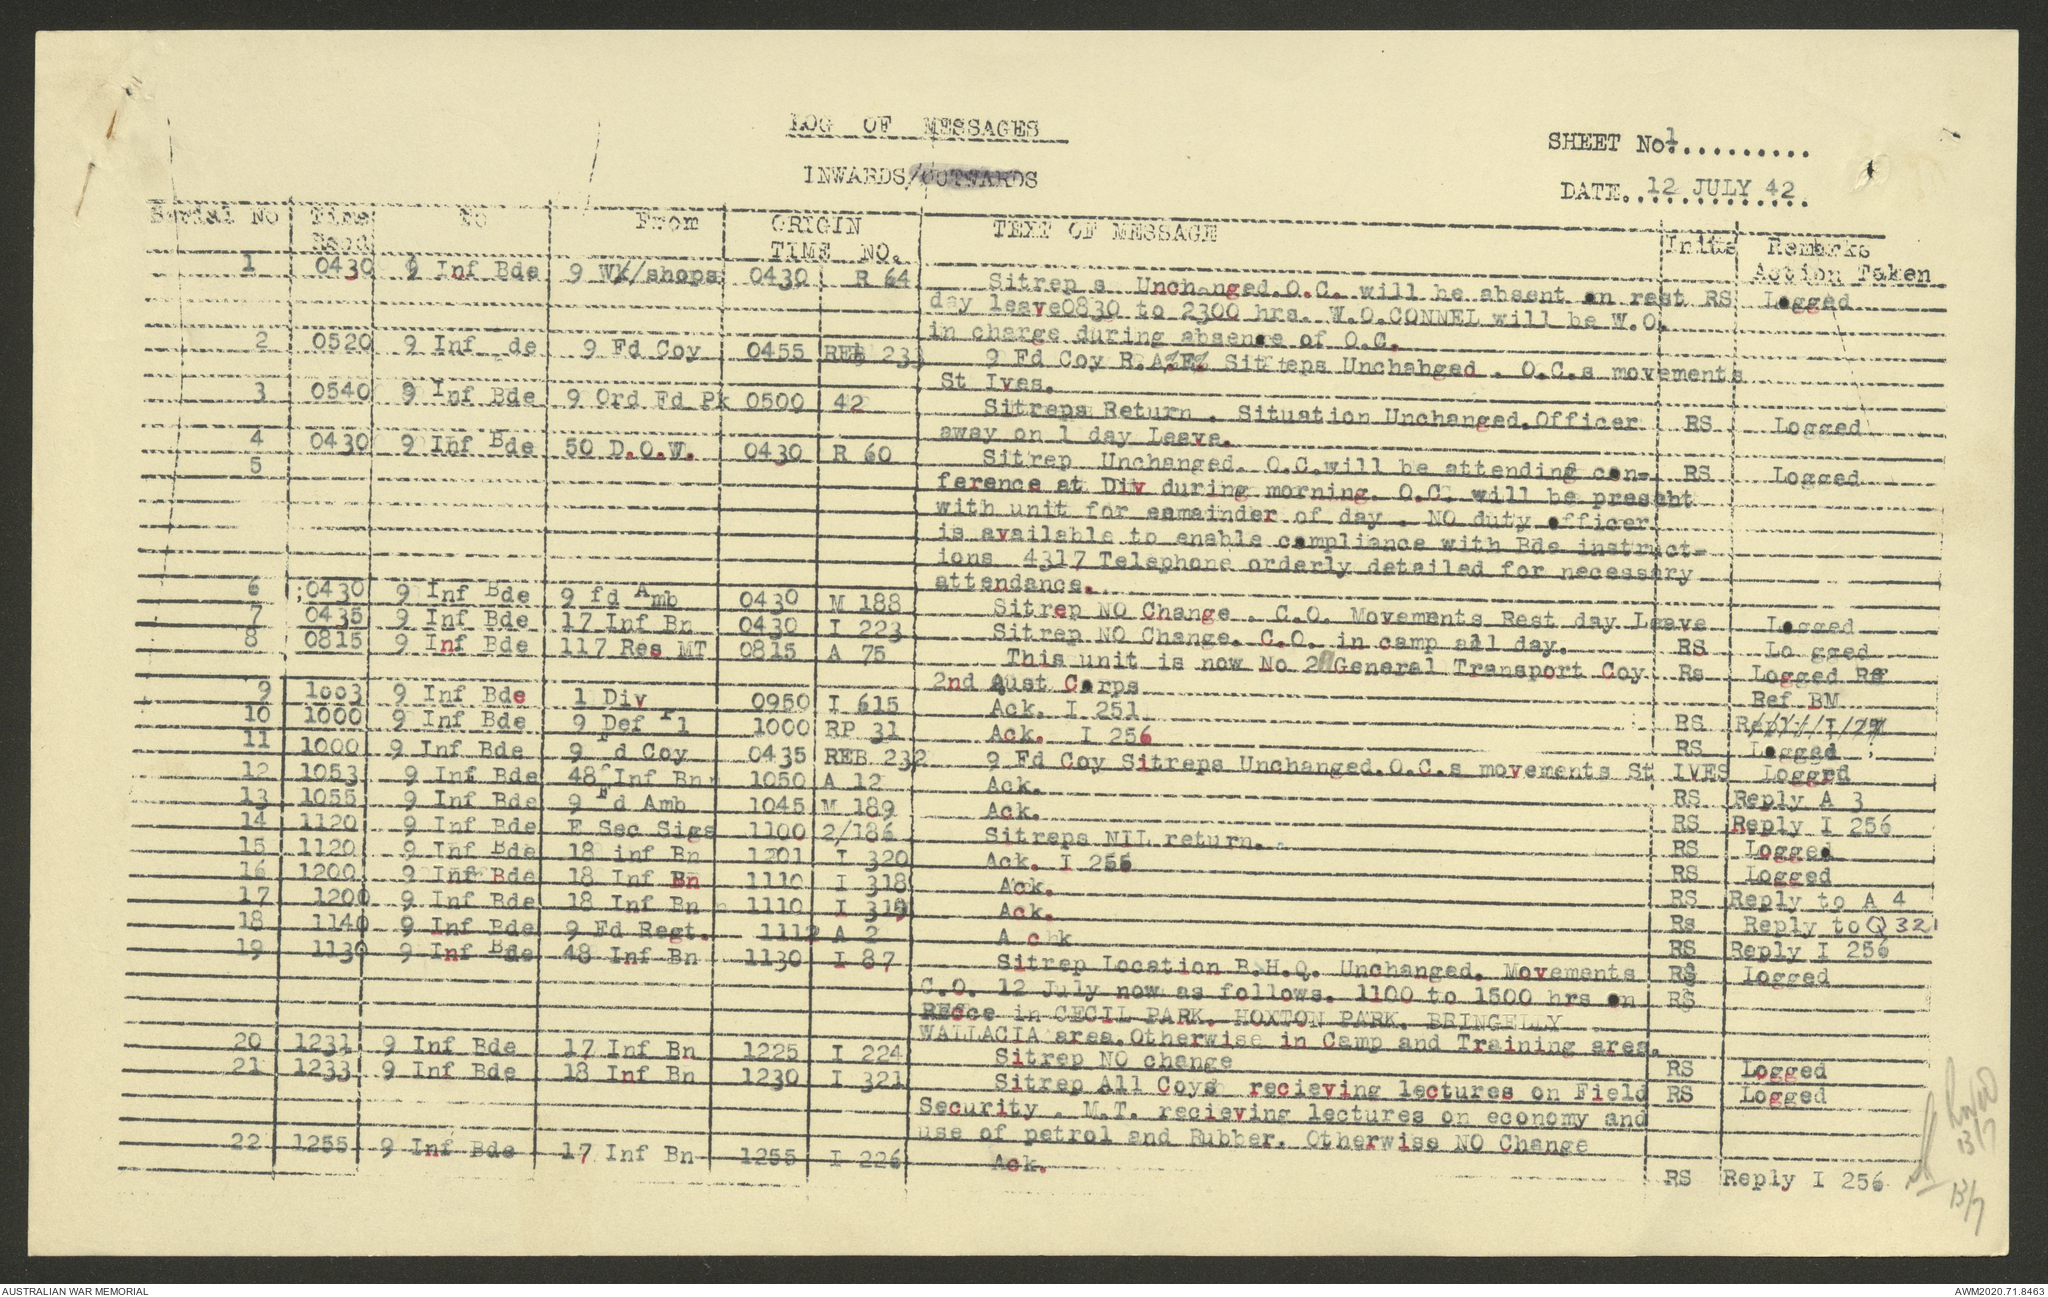 LOG OF MESSAGES
INWARDS/OUTWARDS
SHEET No.1.........
DATE. 12 JULY 42
Serial NO Time Recd To From ORIGIN TIME NO. TEXT OF MESSAGE Initls Remarks Action Taken
1 0430 9 Inf Bde 9 Wk/shops 0430 R 64 Sitrep s Unchanged.O.C. will be absent on rest RS Logged
day leave0830 to 2300 hrs. W.O.CONNEL will be W.O.
in charge during absense of O.C.
2 0520 9 Inf de 9 Fd Coy 0455 REB 233 9 Fd Coy R.A.E. Sitteps Unchahged . O.C.s movements
St Ives.
3 0540 9 Inf Bde 9 Ord Fd Pk 0500 42 Sitreps Return . Situation Unchanged.Officer RS Logged
away on 1 day Leave.
4 0430 9 Inf Bde 50 D.O.W. 0430 R 60 Sitrep Unchanged. O.C.will be attending con- RS Logged
5 ference at Div during morning. O.C. will be preseht
with unit for eamainder of day . NO duty officer
is available to enable compliance with Bde instruct-
ions 4317 Telephone orderly detailed for necessary
attendance.
6 0430 9 Inf Bde 9 fd Amb 0430 M 188 Sitrep NO Change . C.O. Movements Rest day Leave Logged
7 0435 9 Inf Bde 17 Inf Bn 0430 I 223 Sitrep NO Change. C.O. in camp all day. RS Lo gged
8 0815 9 Inf Bde 117 Res MT 0815 A 75 This unit is now No 2 General Transport Coy Rs Logged Rs
2nd Aust Corps Ref BM
9 1003 9 Inf Bde 1 Div 0950 I 615 Ack. I 251 RS
10 1000 9 Inf Bde 9 Def Pl 1000 RP 31 Ack. I 256 RS Logged
11 1000 9 Inf Bde 9 Fd Coy 0435 REB 232 9 Fd Coy Sitreps Unchanged.O.C.s movements St IVES Loggrd
12 1053 9 Inf Bde 48 Inf Bn 1050 A 12 Ack. RS Reply A 3
13 1055 9 Inf Bde 9 Fd Amb 1045 M 189 Ack. RS Reply I 256
14 1120 9 Inf Bde E Sec Sigs 1100 2/186 Sitreps NIL return. RS Logged
15 1120 9 Inf Bde 18 inf Bn 1201 I 320 Ack. I 256 RS Logged
16 1200 9 Inf Bde 18 Inf Bn 1110 I 318 Ack. RS Reply to A 4
17 1200 9 Inf Bde 18 Inf Bn 1110 I 319 Ack. Rs Reply to Q 32
18 1140 9 Inf Bde 9 Fd Regt. 1112 A 2 A ck RS Reply I 256
19 1130 9 Inf Bde 48 Inf Bn 1130 I 87 Sitrep Location B.H.Q. Unchanged. Movements RS Logged
C.O. 12 July now as follows. 1100 to 1500 hrs on RS
REcce in CECIL PARK. HOXTON PARK. BRINGELLY
WALLACIA area.Otherwise in Camp and Training area.
20 1231 9 Inf Bde 17 Inf Bn 1225 I 224 Sitrep NO change RS Logged
21 1233 9 Inf Bde 18 Inf Bn 1230 I 321 Sitrep All Coys recieving lectures on Field RS Logged
Security . M.T. recieving lectures on economy and
use of petrol and Rubber. Otherwise NO Change
22 1255 9 Inf Bde 17 Inf Bn 1255 I 226 Ack. RS Reply I 256
13/7
13/7
AUSTRALIAN WAR MEMORIAL
AWM2020.71.8463